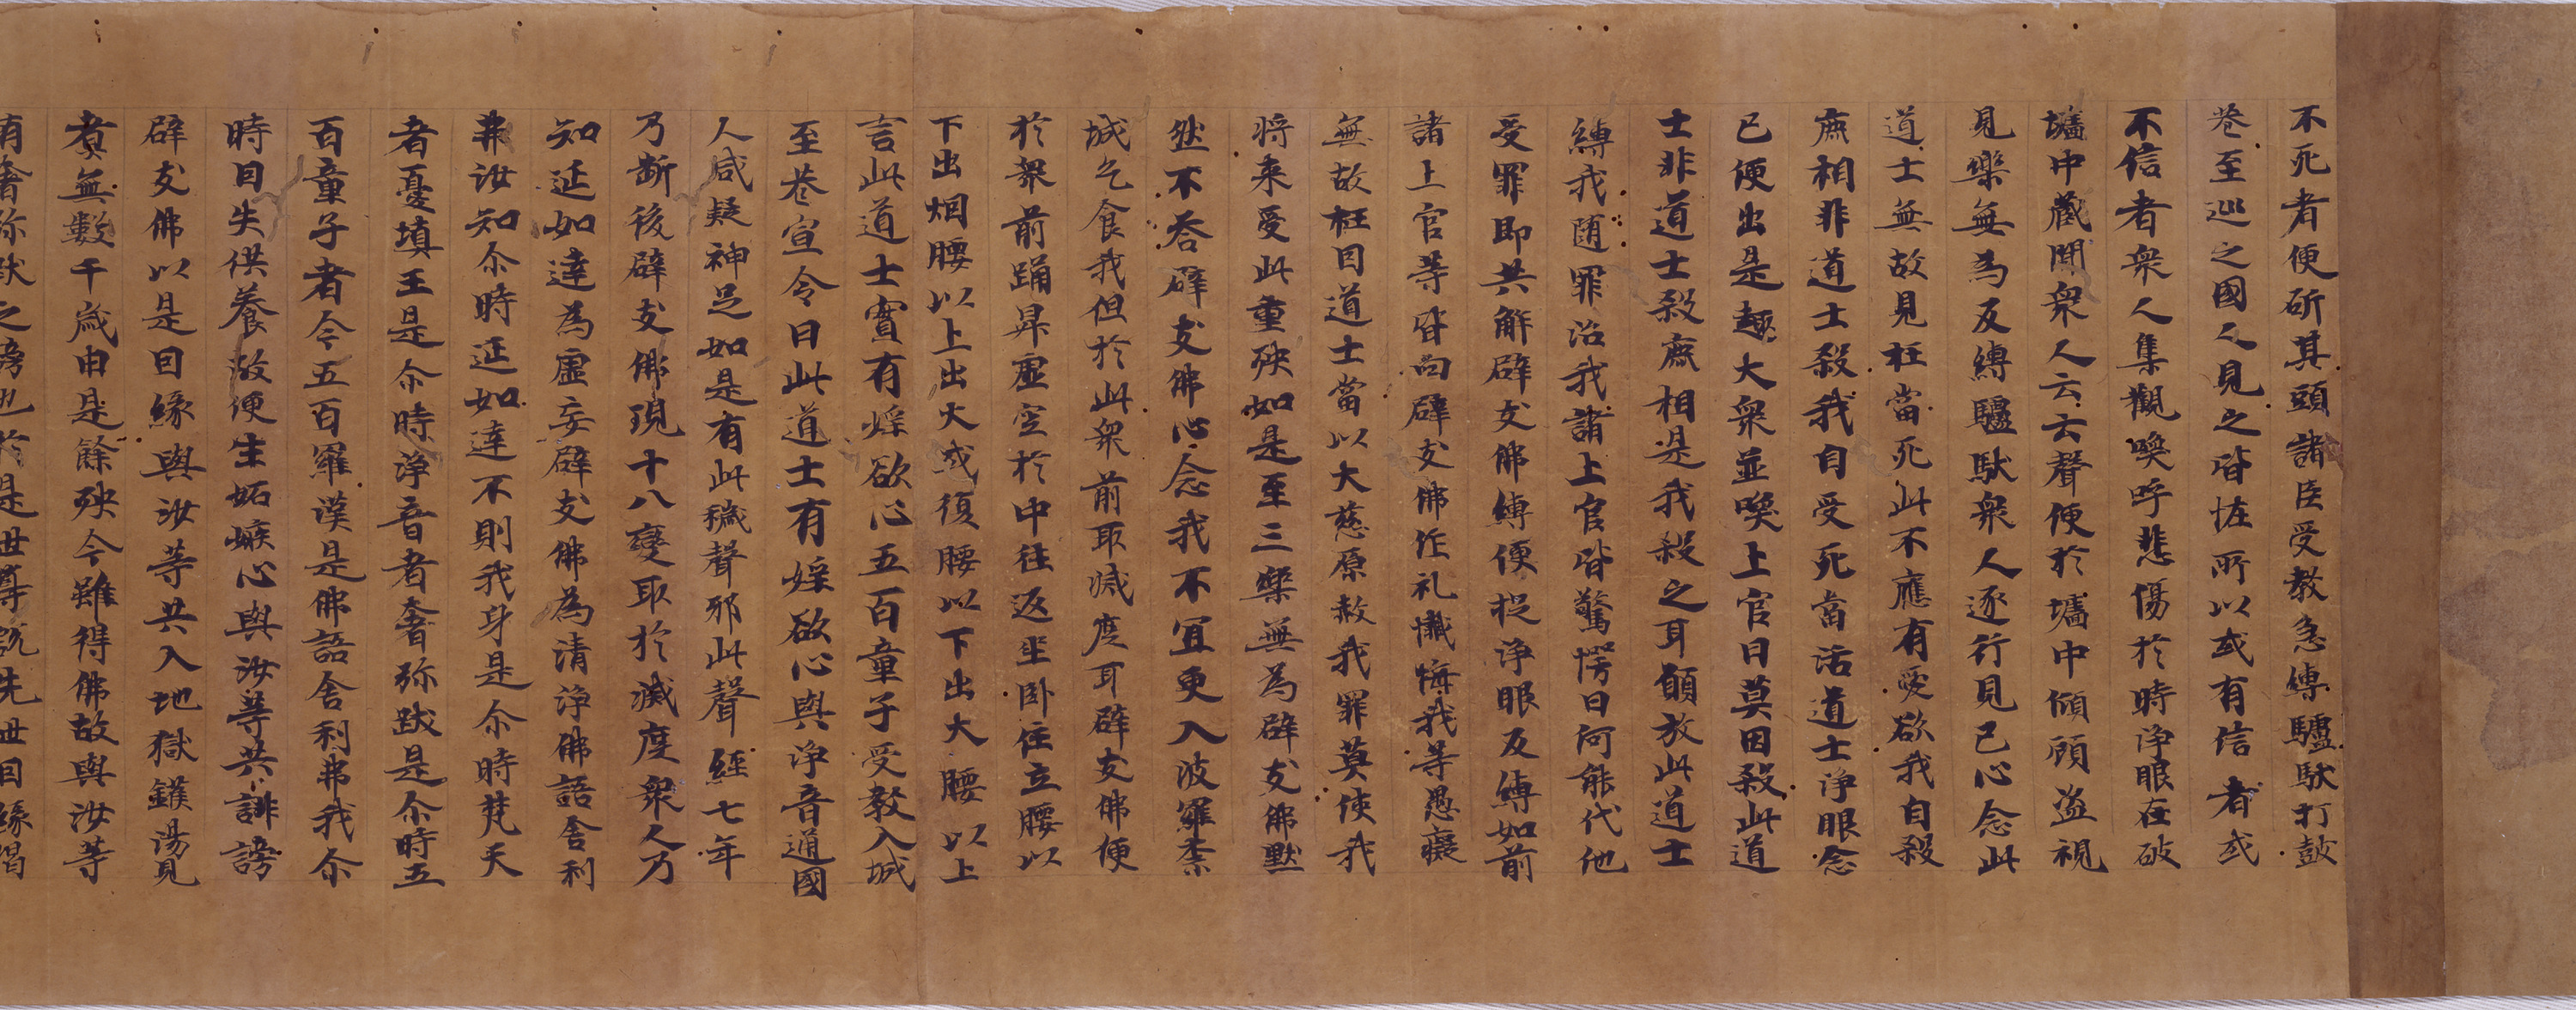 不死者便斫其頭諸臣受教急縛驢馱打鼓
巷至巡之國人見之皆恠所以或有信者或
不信者衆人集觀喚呼悲傷於時淨眼在破
墻中藏聞衆人云云聲便於墻中傾顧盜視
見樂無為反縛驢馱衆人逐行見已心念此
道士無故見枉當死此不應有愛欲我自殺
鹿相非道士殺我自受死當活道士淨眼念
已便出是趣大衆並喚上官曰莫因殺此道
士非道士殺鹿相是我殺之耳願放此道士
縛我隨罪治我諸上官皆驚愕曰何能代他
受罪即共解辟支佛縛便捉淨眼反縛如前
諸上官等皆向辟支佛作礼懺悔我等愚癡
無故枉因道士當以大慈原赦我罪莫使我
将来受此重殃如是至三樂無為辟支佛默
然不荅辟支佛心念我不宜更入波羅柰
城乞食我但於此衆前取滅度耳辟支佛便
於衆前踊昇虛空於中往返坐卧住立腰以
下出烟腰以上出火或復腰以下出火腰以上
言此道士實有婬欲心五百童子受教入城
至巷宣令曰此道士有婬欲心與淨音通國
人咸疑神足如是有此穢聲邪此聲經七年
乃斷後辟支佛現十八變取於滅度衆人乃
知延如達為虛妄辟支佛為清淨佛語舍利
弗汝知尒時延如達不則我身是尒時梵天
者憂填王是尒時淨音者奢弥跋是尒時五
百童子者今五百羅漢是佛語舍利弗我尒
時因失供養故便生妬嫉心與汝等共誹謗
辟支佛以是因緣與汝等共入地獄鑊湯見
煮無數千歲由是餘殃今雖得佛故與汝等
有奢弥跋之謗也於是世尊說先世因緣偈